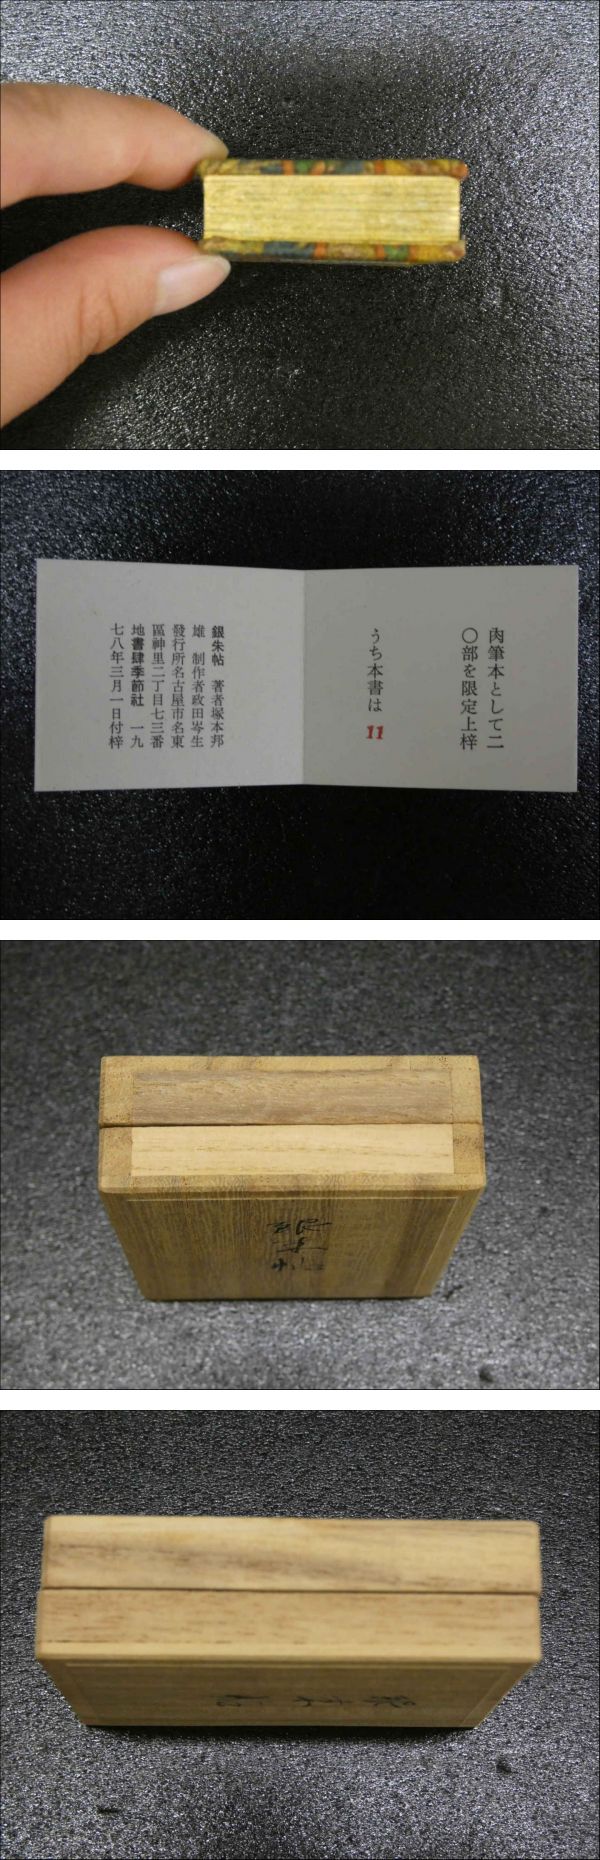 肉筆本として二
〇部を限定上梓
うち本書は 11
銀朱帖 著者塚本邦
雄 制作者政田岑生
發行所名古屋市名東
區神里二丁目七三番
地書肆季節社 一九
七八年三月一日付梓
銀朱帖